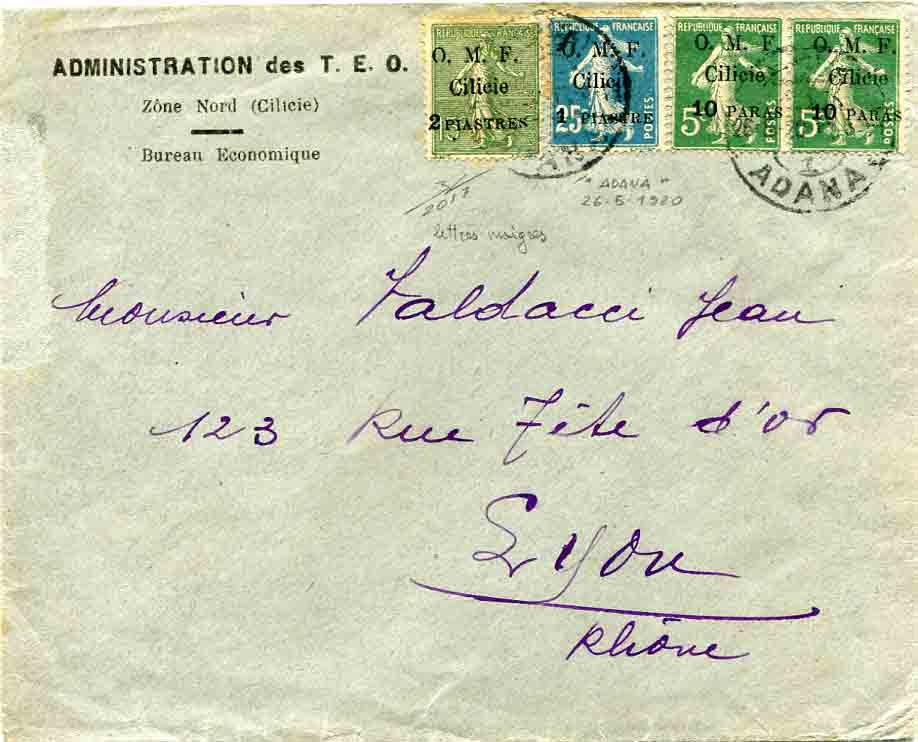 ADMINISTRATION des T. E. O.
Zône Nord (Cilicie)
Bureau Economique
REPUBLIQUE FRANÇAISE
O. M. F.
Cilicie
2 PIASTRES
REPUBLIQUE FRANÇAISE
O. M. F.
Cilicie
1 PIASTRE
25c
POSTES
REPUBLIQUE FRANÇAISE
O. M. F.
Cilicie
10 PARAS
5c
POSTES
REPUBLIQUE FRANÇAISE
O. M. F.
Cilicie
10 PARAS
5c
POSTES
ADANA
"ADANA"
26-5-1920
lettres maigres
Monsieur Valdacci Jean
123 Rue Tête d'or
Lyon
Rhône